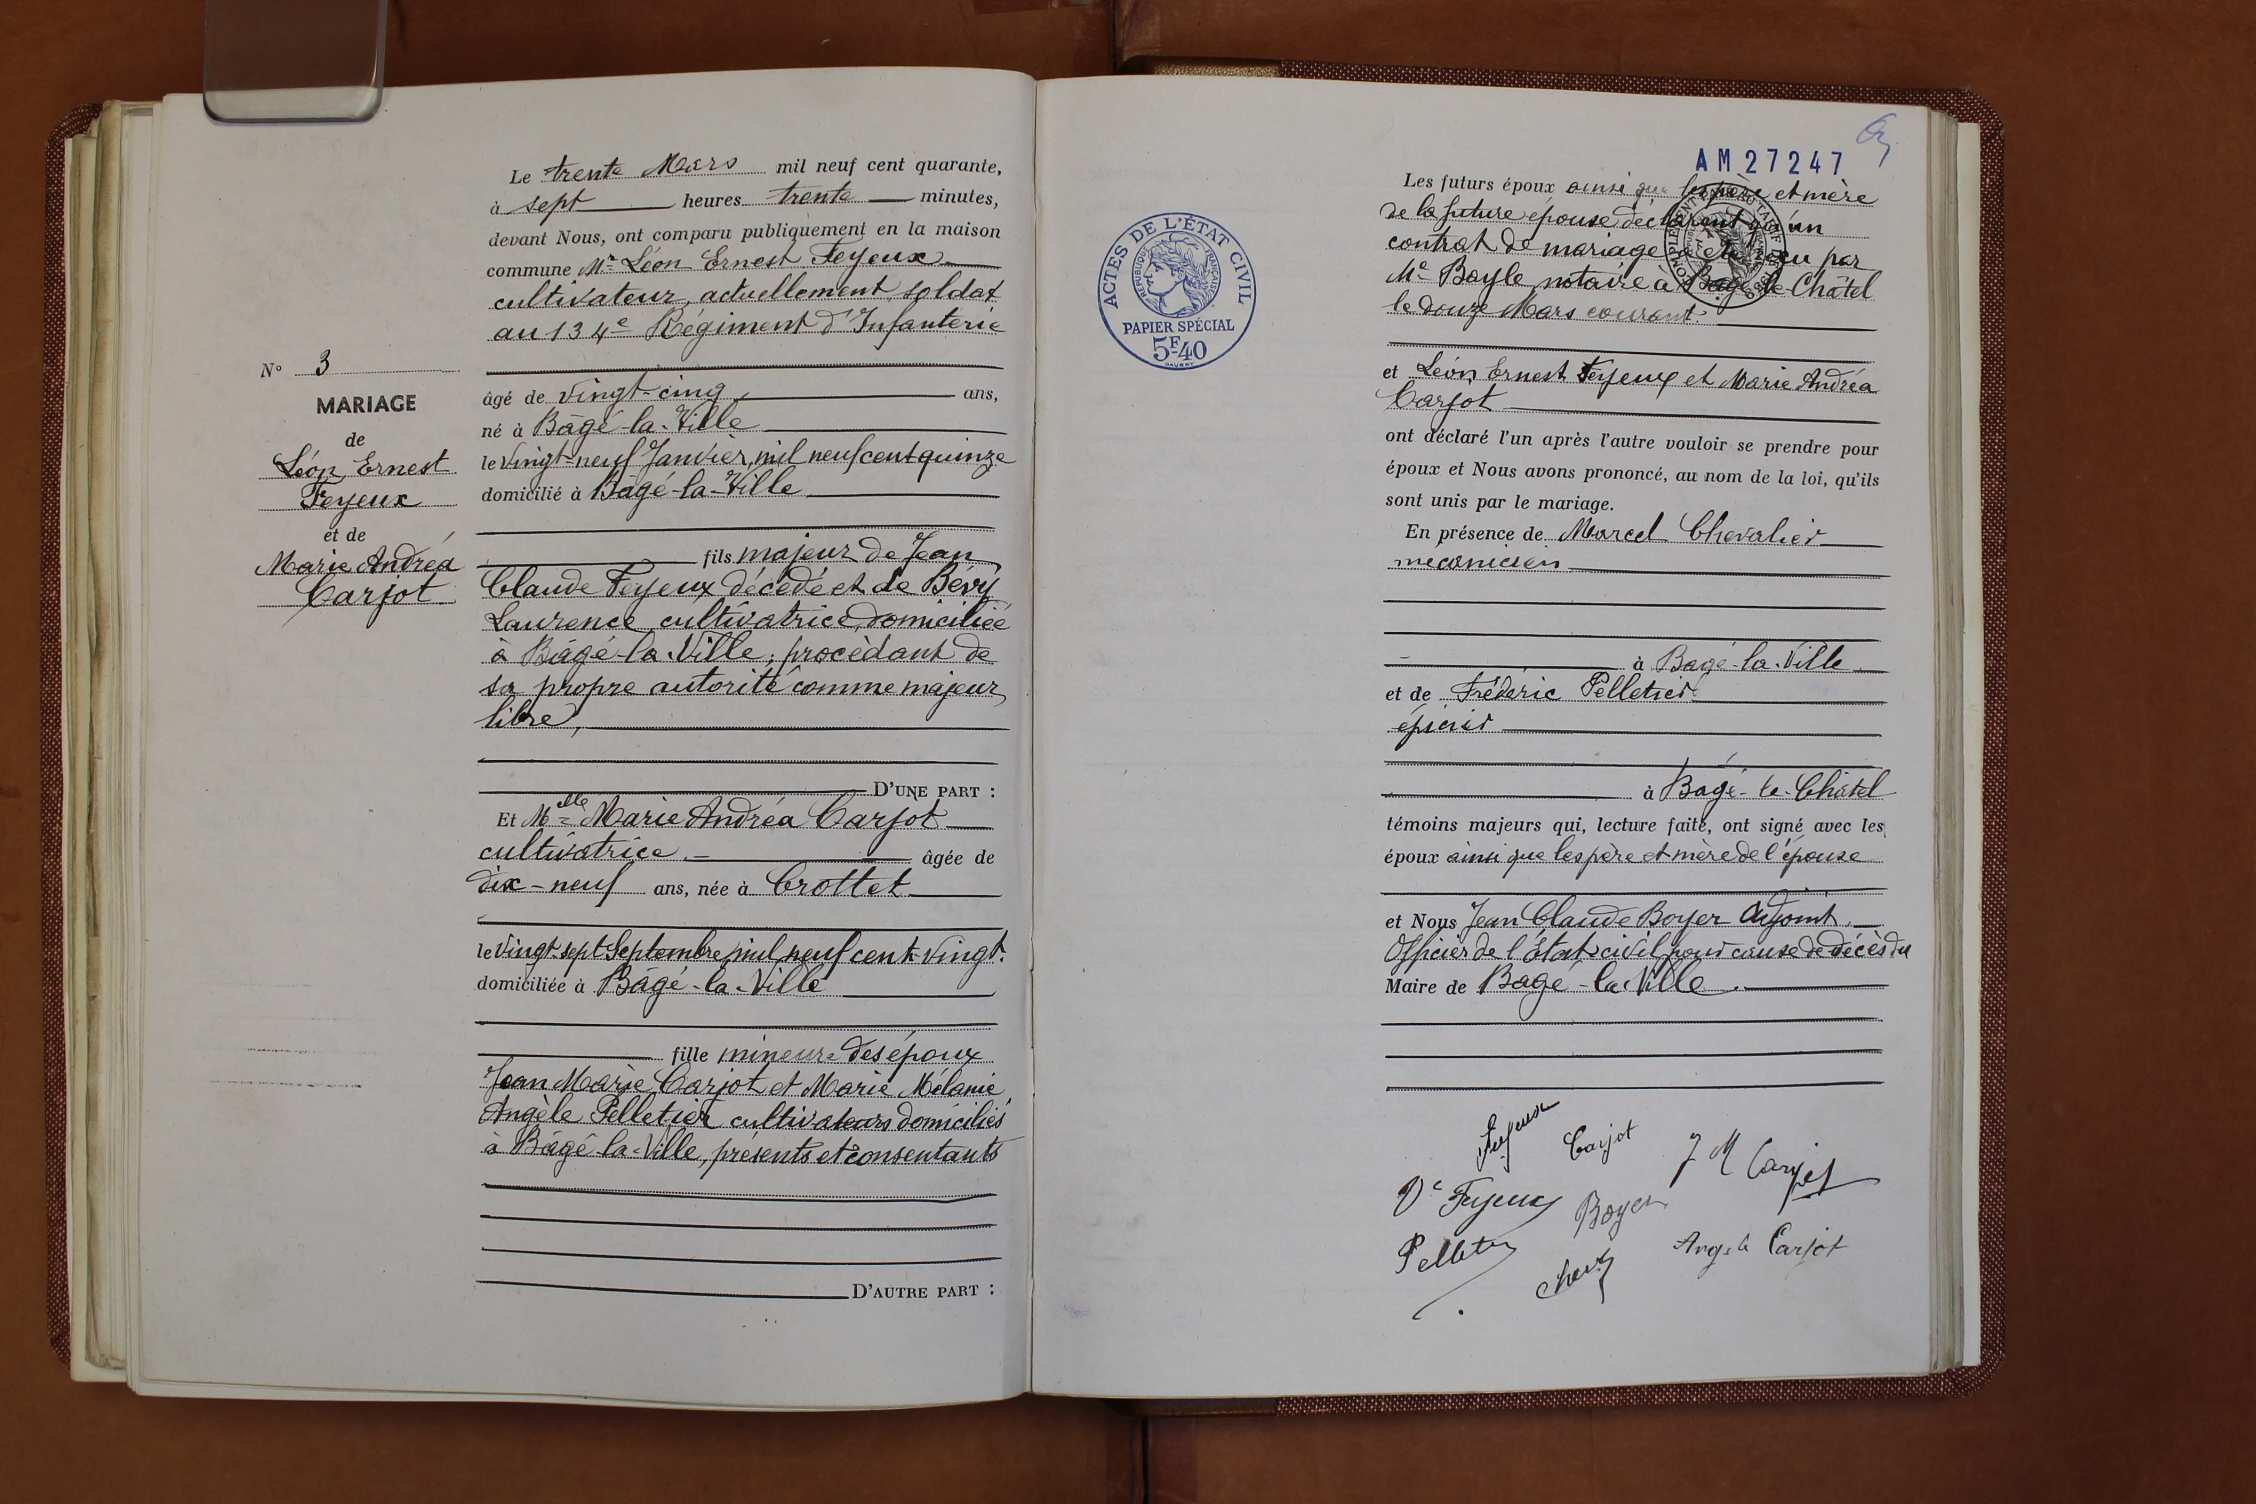 Le trente Mars mil neuf cent quarante,
à sept heures trente minutes,
devant Nous, ont comparu publiquement en la maison
commune Mr Léon Ernest Feyeux
cultivateur, actuellement soldat
au 134e Régiment d'Infanterie
N° 3
MARIAGE
de
Léon Ernest
Feyeux
et de
Marie Andréa
Carjot
âgé de vingt-cinq ans,
né à Bâgé-la-Ville
le vingt-neuf Janvier mil neuf cent quinze
domicilié à Bâgé-la-Ville
fils majeur de Jean
Claude Feyeux décédé et de Bévy
Laurence cultivatrice domiciliée
à Bâgé-la-Ville, procèdant de
sa propre autorité comme majeur
libre,
D'UNE PART :
Et Melle Marie Andréa Carjot
cultivatrice âgée de
dix-neuf ans, née à Crottet
le vingt-sept Septembre mil neuf cent vingt.
domiciliée à Bâgé-la-Ville
fille mineure des époux
Jean Marie Carjot et Marie Mélanie
Angèle Pelletier cultivateurs domiciliés
à Bâgé-la-Ville, présents et consentants
D'AUTRE PART :
AM 27247
ACTES DE L'ÉTAT CIVIL
RÉPUBLIQUE FRANÇAISE
PAPIER SPÉCIAL
5F40
Les futurs époux ainsi que les père et mère
de la future épouse déclarent qu'un
contrat de mariage a été reçu par
Me Boyle notaire à Bâgé-le-Châtel
le douze Mars courant.
et Léon Ernest Feyeux et Marie Andréa
Carjot
ont déclaré l'un après l'autre vouloir se prendre pour
époux et Nous avons prononcé, au nom de la loi, qu'ils
sont unis par le mariage.
En présence de Marcel Chevalier
mécanicien
à Bagé-la-Ville
et de Frédéric Pelletier
épicier
à Bâgé-le-Châtel
témoins majeurs qui, lecture faite, ont signé avec les
époux ainsi que les père et mère de l'épouse
et Nous Jean Claude Boyer Adjoint,
Officier de l'État-civil pour cause de décès du
Maire de Bagé-la-Ville.
Feyeux
Carjot
J M Carjot
Ve Feyeux
Boyer
Pelletier
Angèle Carjot